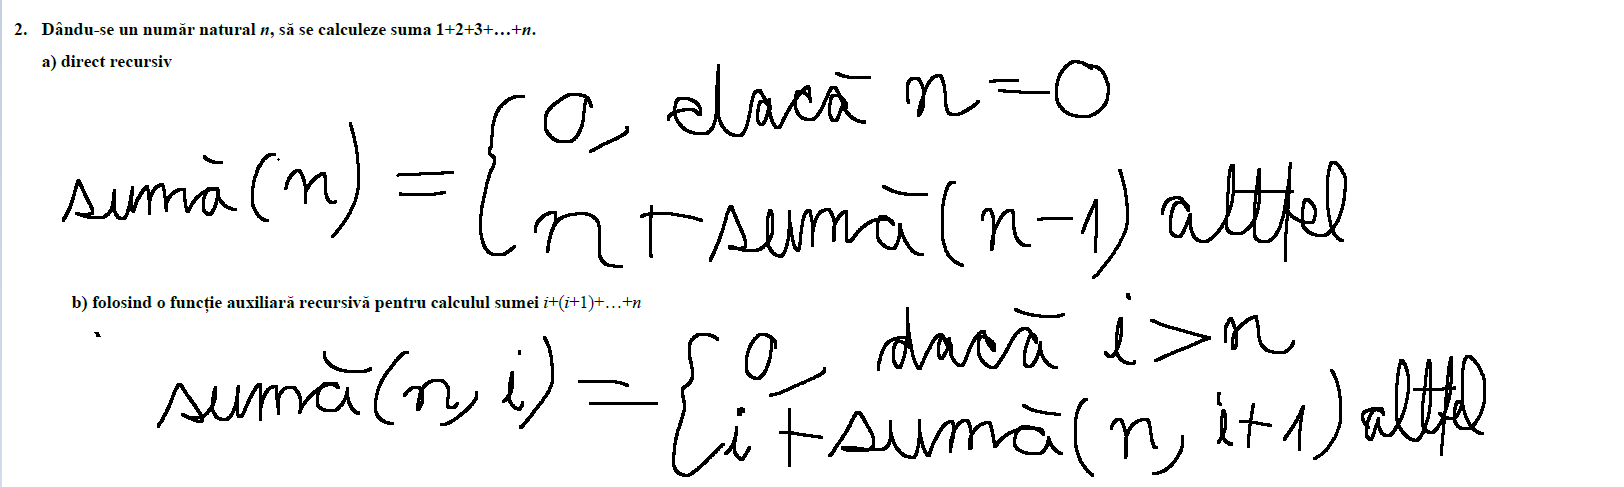 2. Dându-se un număr natural n, să se calculeze suma 1+2+3+…+n.
a) direct recursiv
sumă(n) = { 0, dacă n=0
n+sumă(n-1) altfel
b) folosind o funcție auxiliară recursivă pentru calculul sumei i+(i+1)+…+n
sumă(n, i) = { 0, dacă i>n
i+sumă(n, i+1) altfel